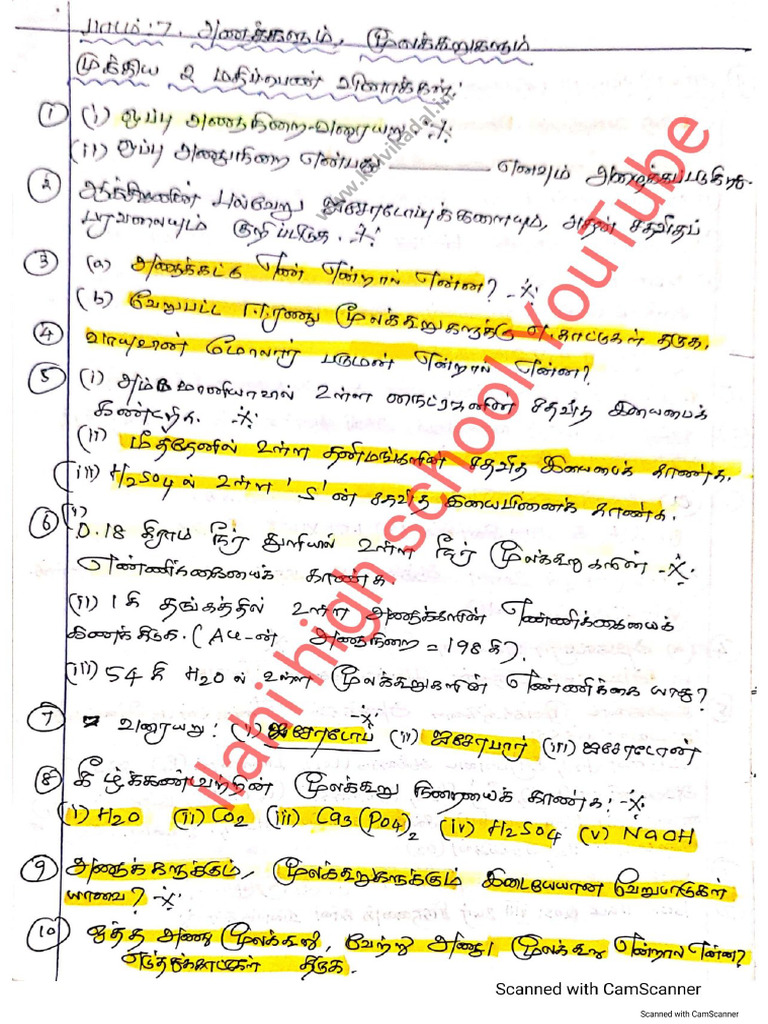 பாடம்:7. அணுக்களும், மூலக்கூறுகளும்
முக்கிய 2 மதிப்பெண் வினாக்கள்:
① (i) ஒப்பு அணுநிறை-வரையறு
(ii) ஒப்பு அணுநிறை என்பது ________ எனவும் அழைக்கப்படுகிறது.
② ஆக்ஸிஜனின் பல்வேறு ஐசோடோப்புக்களையும், அதன் சதவீதப்
பரவலையும் குறிப்பிடுக.
③ (a) அணுக்கட்டு எண் என்றால் என்ன?
(b) வேறுபட்ட ஈரணு மூலக்கூறுகளுக்கு எ.காட்டுகள் தருக.
④ வாயுவின் மோலார் பருமன் என்றால் என்ன?
⑤ (i) அம்மோனியாவில் உள்ள நைட்ரஜனின் சதவீத இயைபைக்
கண்டறிக.
(ii) மீத்தேனில் உள்ள தனிமங்களின் சதவீத இயைபைக் காண்க.
(iii) H2SO4ல் உள்ள 'S'ன் சதவீத இயைபினைக் காண்க.
⑥ (i) 0.18 கிராம் நீர் துளியில் உள்ள நீர் மூலக்கூறுகளின்
எண்ணிக்கையைக் காண்க.
(ii) 1கி தங்கத்தில் உள்ள அணுக்களின் எண்ணிக்கையைக்
கணக்கிடுக. (Au-ன் அணுநிறை = 198 கி).
(iii) 54 கி H2Oல் உள்ள மூலக்கூறுகளின் எண்ணிக்கை யாது?
⑦ வரையறு: (i) ஐசோடோப் (ii) ஐசோபார் (iii) ஐசோடோன்
⑧ கீழ்க்கண்டவற்றின் மூலக்கூறு நிறையைக் காண்க:
(i) H2O (ii) CO2 (iii) Ca3(PO4)2 (iv) H2SO4 (v) NaOH
⑨ அணுக்களுக்கும், மூலக்கூறுகளுக்கும் இடையேயான வேறுபாடுகள்
யாவை?
⑩ ஒத்த அணு மூலக்கூறு, வேற்று அணு மூலக்கூறு என்றால் என்ன?
எடுத்துக்காட்டுகள் தருக.
www.kalvikadal.in
Ilahi high school YouTube
Scanned with CamScanner
Scanned with CamScanner